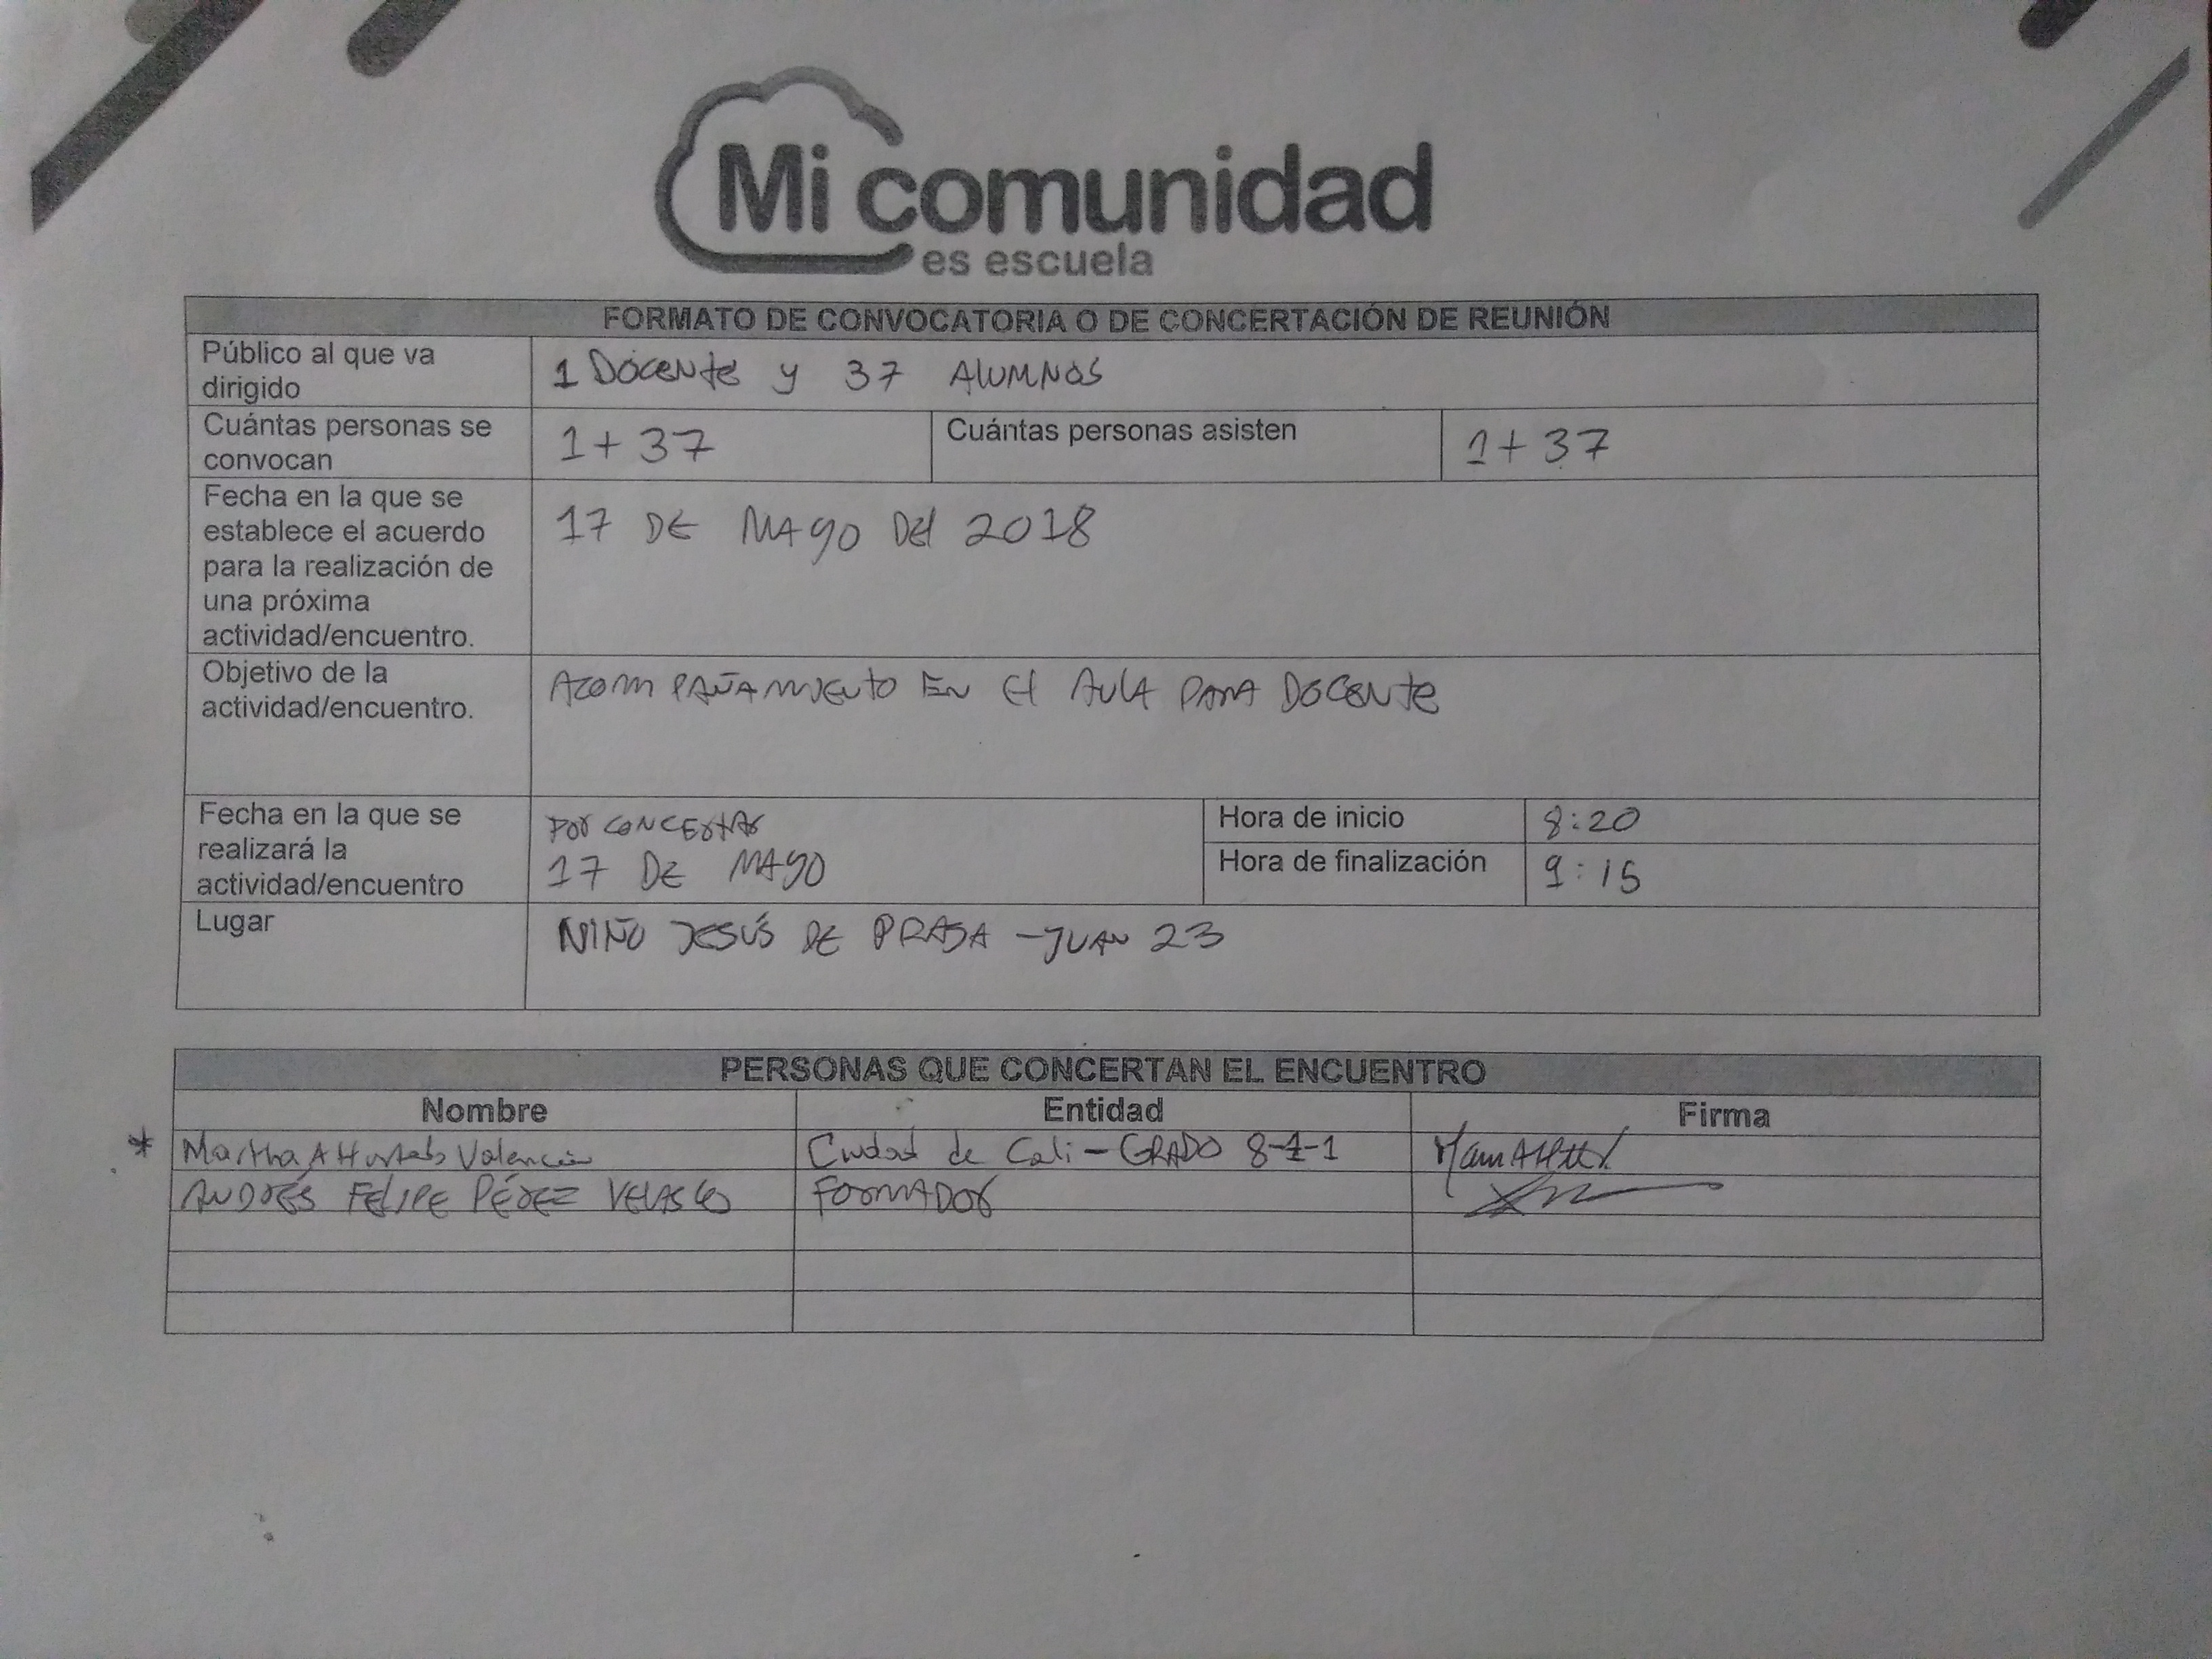 Mi comunidad
es escuela
FORMATO DE CONVOCATORIA O DE CONCERTACIÓN DE REUNIÓN
Público al que va
dirigido
1 Docente y 37 Alumnos
Cuántas personas se
convocan
1+ 37
Cuántas personas asisten
1+ 37
Fecha en la que se
establece el acuerdo
para la realización de
una próxima
actividad/encuentro.
17 DE MAYO DEl 2018
Objetivo de la
actividad/encuentro.
ACOMPAÑAMIENTO EN El AULA PARA DOCENTE
Fecha en la que se
realizará la
actividad/encuentro
POR CONCERTAR
17 DE MAYO
Hora de inicio
8:20
Hora de finalización
9:15
Lugar
NIÑO JESÚS DE PRAGA - JUAN 23
PERSONAS QUE CONCERTAN EL ENCUENTRO
Nombre Entidad Firma
* Martha A Hurtado Valencia Ciudad de Cali - GRADO 8-1-1
ANDRÉS FELIPE PÉREZ VELASCO FORMADOR